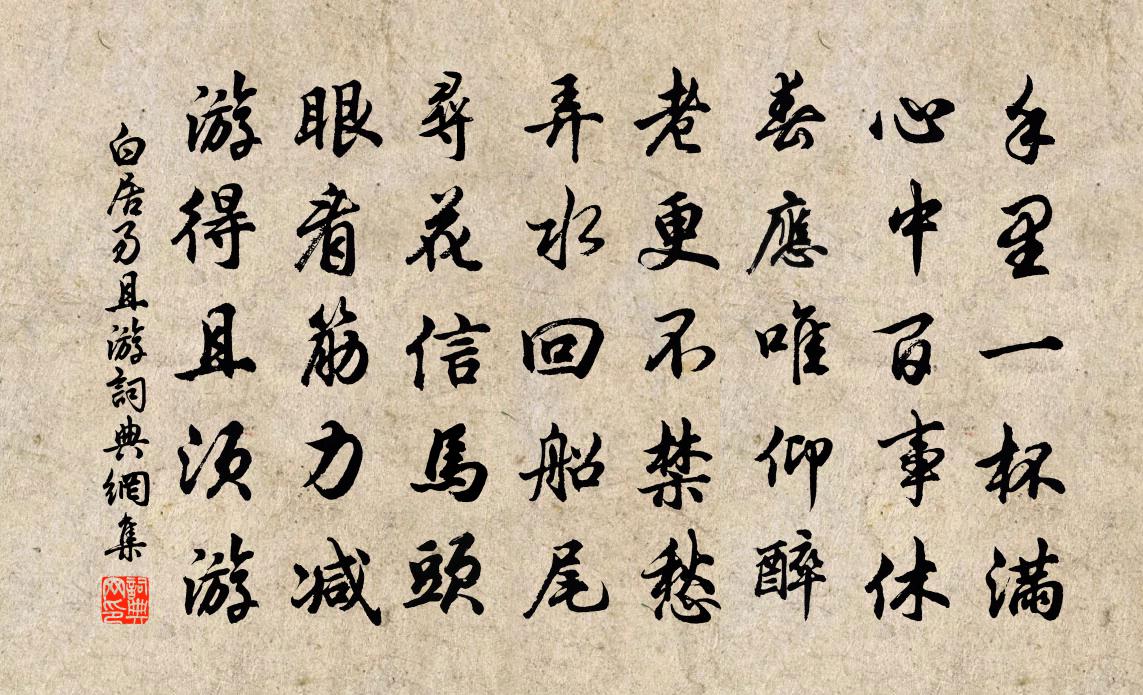 手里一杯满
心中百事休
春應唯仰醉
老更不禁愁
弄水回船尾
尋花信馬頭
眼看筋力减
游得且須游
白居易且游詞典網集
詞典网印